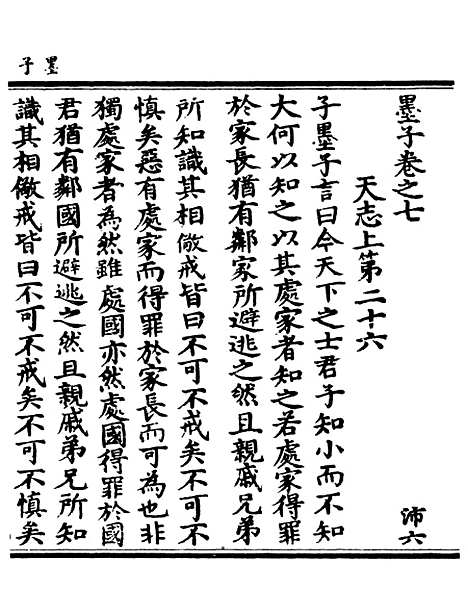 墨子
墨子卷之七　沛六
天志上第二十六
子墨子言曰今天下之士君子知小而不知
大何以知之以其處家者知之若處家得罪
於家長猶有鄰家所避逃之然且親戚兄弟
所知識其相儆戒皆曰不可不戒矣不可不
慎矣惡有處家而得罪於家長而可為也非
獨處家者為然雖處國亦然處國得罪於國
君猶有鄰國所避逃之然且親戚弟兄所知
識其相儆戒皆曰不可不戒矣不可不慎矣